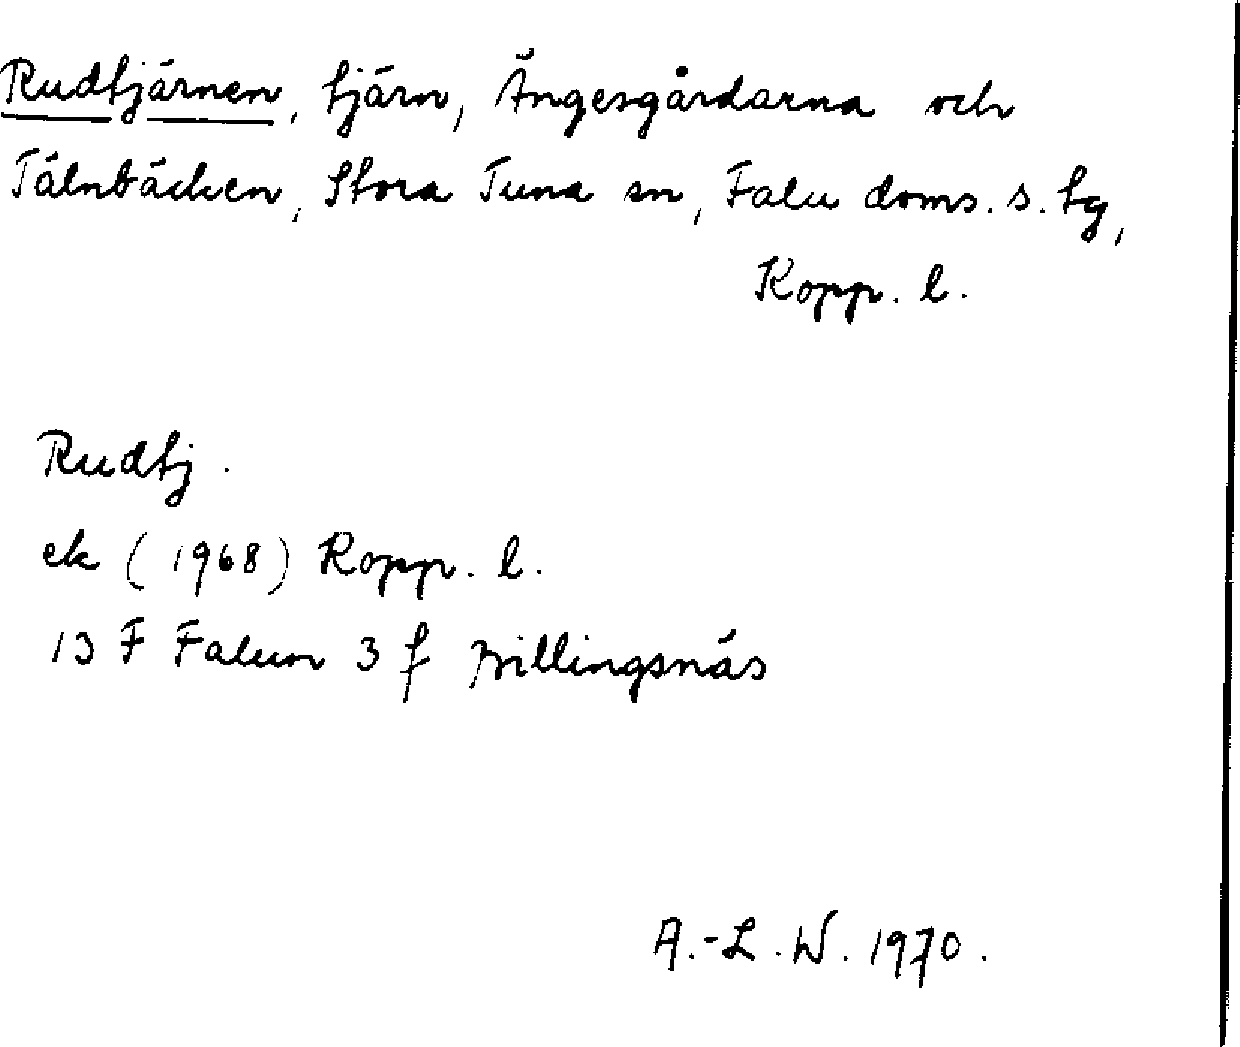 Rudtjärnen, tjärn, Ängesgårdarna och
Tälnbäcken, Stora Tuna sn, Falu doms. s. tg,
Kopp. l.
Rudtj.
ek (1968) Kopp. l.
13 F Falun 3 f Prillingsnäs
A.-L. W. 1970.